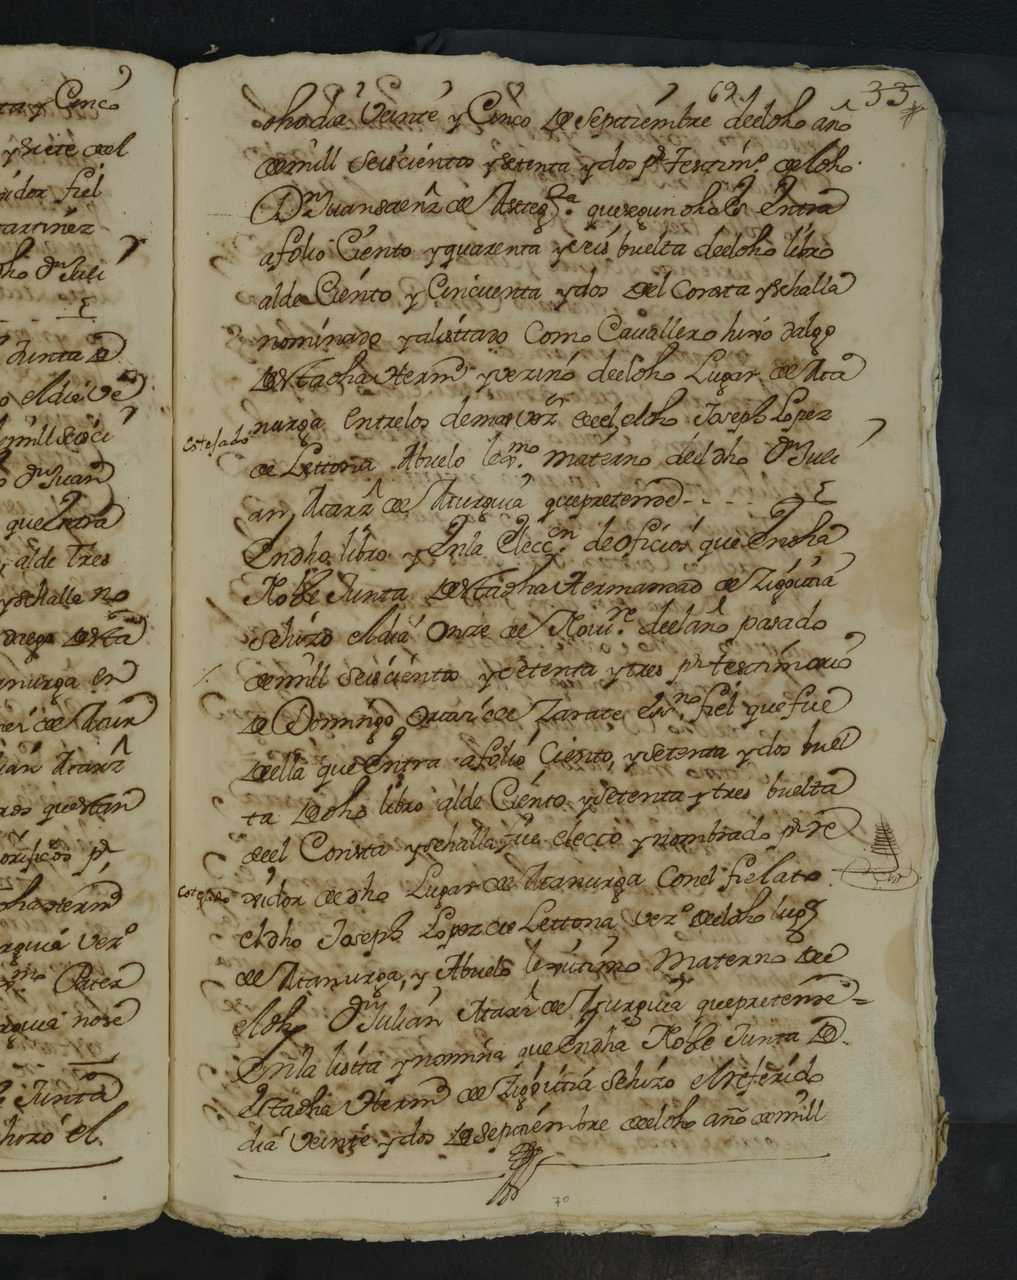 ta y Cinco
y siete del
ridor fiel
artinez
dho Dn Juli
Junta De
el dia Ve
mill seisci
Dn Juan
que Entra
alde tres
y se halla no
anurga en
pr
dha Herm
Junta
hizo el
621 33
dho dia Veinte y Cinco De Septtiembre deel dho año
de mill seiscientos y setenta y dos pr Testimo. de el dho
Dn Juan saenz de Astegta. que segun dho es Entra
a folio Ciento y quarenta y seis buelta deel dho libro
al de Ciento y Cincuenta y dos Del Consta y se halla
nominado y alisttado Como Cavallero hijo dalgo
De esta dha Hermd y vezino deel dho Lugar de Ata
nurga entre los demas vezs de el el dho Joseph Lopez
Cotejado
de Lettona Abuelo lexmo. materno deel dho Dn Juli
an Atarz de Aturguia que pretende
En dho libro y En la Elecson. de oficios que En dha
Noble Junta De esta dha Hermandad de Zigoitia
se hizo el dia Onze de Novire. deel año pasado
de mill seiscientos y setenta y tres pr testimonio
De Domingo Ortiz de Zarate Essno. fiel que fue
De ella que Entra a folio Ciento, y setenta y dos buel
ta De dho libro al de Ciento y setenta y tres buelta
de el Consta y se halla fue electo y nombrado pr re
Cotejado
xidor de dho Lugar de Atanurga Con el fielato
el dho Joseph Lopez de Lettona vezo. de el dho lugr
de Atanurga, y Abuelo lexitimo Materno De
el dho Dn Julian Atarz de Aturguia que pretende =
En la listta y nomina que En dha Noble Junta De
Esta dha Hermd de Zigoitia se hizo el referido
dia Veinte y dos De septiembre de el dho año de mill
70